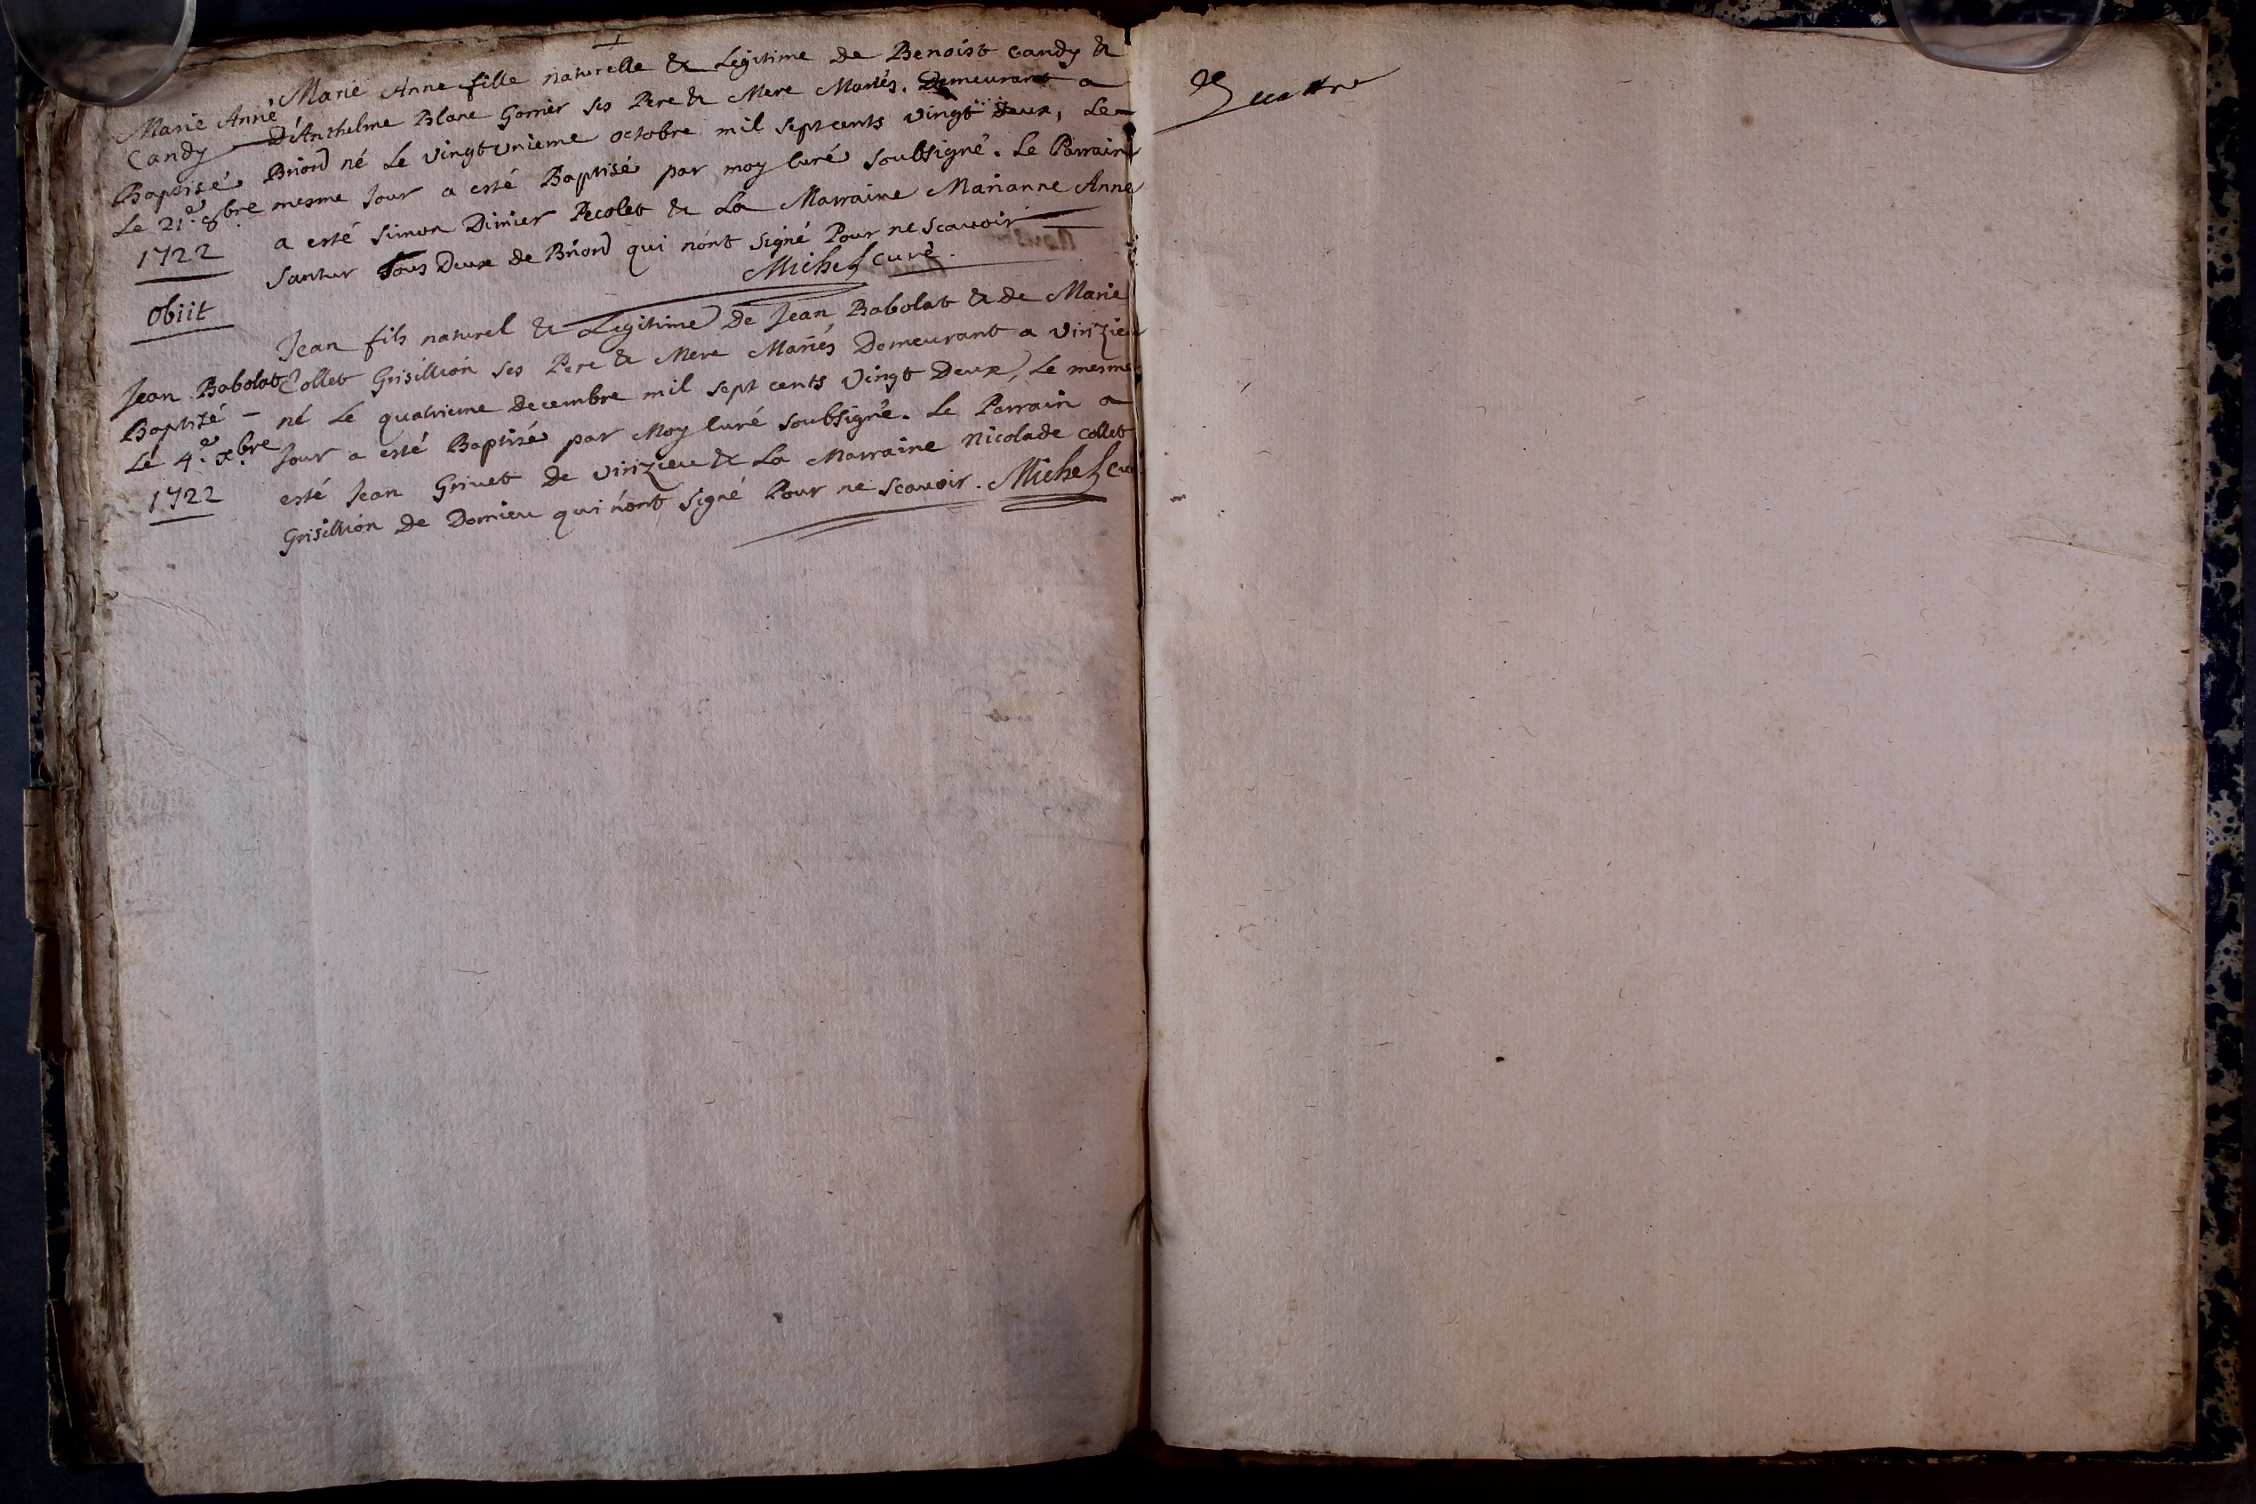 Marie Anne
Candy
Baptisé
Le 21.e 8bre
1722
obiit
Marie Anne fille naturelle & Legitime de Benoist Candy &
D'Anthelme Blanc Gorrier ses Pere & Mere Mariés. Demeurant a
Briord né Le vingt unieme octobre mil sept cents vingt deux, Le
mesme Jour a esté Baptisé par moy Curé soubsigné. Le Parrain
a esté Simon Dinier Pecolet & La Marraine Marianne Anne
Santur Tous Deux de Briord qui n'ont signé Pour ne scavoir
Michel Curé.
Jean Babolat
Baptisé
Le 4.e xbre
1722
Jean fils naturel & Legitime De Jean Babolat & de Marie
Collet Grisillion ses Pere & Mere Mariés Demeurant a virizieu
né Le quatrieme Decembre mil sept cents Vingt Deux, Le mesme
Jour a esté Baptisé par Moy Curé soubsigné. Le Parrain a
esté Jean Grivet de virizieu & La Marraine Nicolade Collet
Grisillion de Dornieu qui n'ont signé Pour ne scavoir. Michel Cu